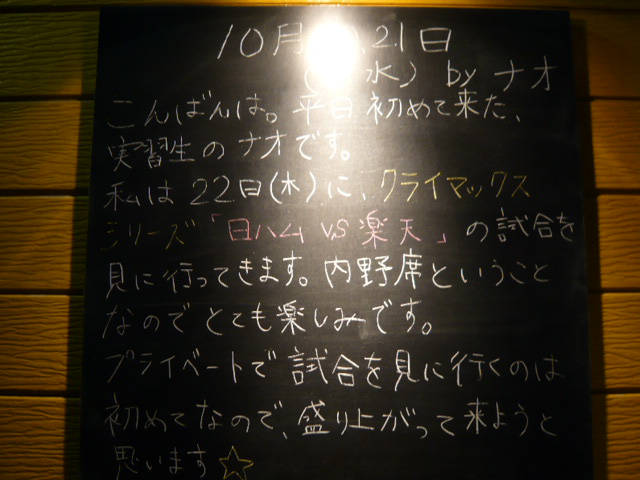 10月 21日
水) by ナオ
こんばんは。平日初めて来た、
実習生のナオです。
私は22日(木)に、クライマックス
シリーズ「日ハム VS 楽天」の試合を
見に行ってきます。内野席ということ
なのでとても楽しみです。
プライベートで試合を見に行くのは
初めてなので、盛り上がって来ようと
思います☆